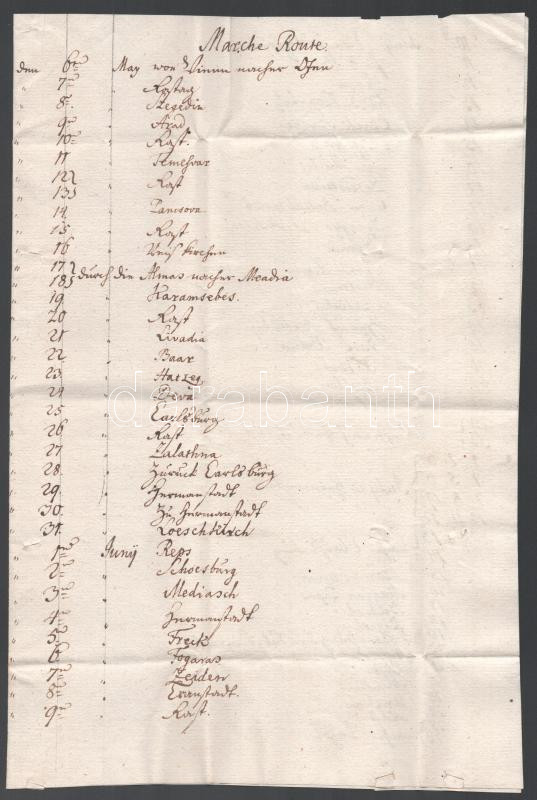 Marche Route.
den 6ten May von Vienn nacher Ofen
" 7ten " Rasttag
" 8ten " Szegedin
" 9ten " Arad
" 10ten " Rast.
" 11 " Temesvar
" 12
" 13 " Rast
" 14 " Pancsova
" 15 " Rast
" 16 " Weis kirchen
" 17
" 18 durch die Almas nacher Meadia
" 19 " Karamsebes.
" 20 " Rast
" 21 " Livadia
" 22 " Baar
" 23 " Hatzeg
" 24 " Deva
" 25 " Carlsburg
" 26 " Rast
" 27 " Zalathna
" 28 " Zuruck Carlsburg
" 29 " Hermanstadt
" 30 " Zu Hermanstadt
" 31. " Loeschkirch
" 1ten Junÿ Reps
" 2ten " Schoesburg
" 3ten " Mediasch
" 4ten " Hermanstadt
" 5ten " Freck
" 6ten " Fogaras
" 7ten " Zeiden
" 8ten " Cronstadt.
" 9ten " Rast.
darabanth.com